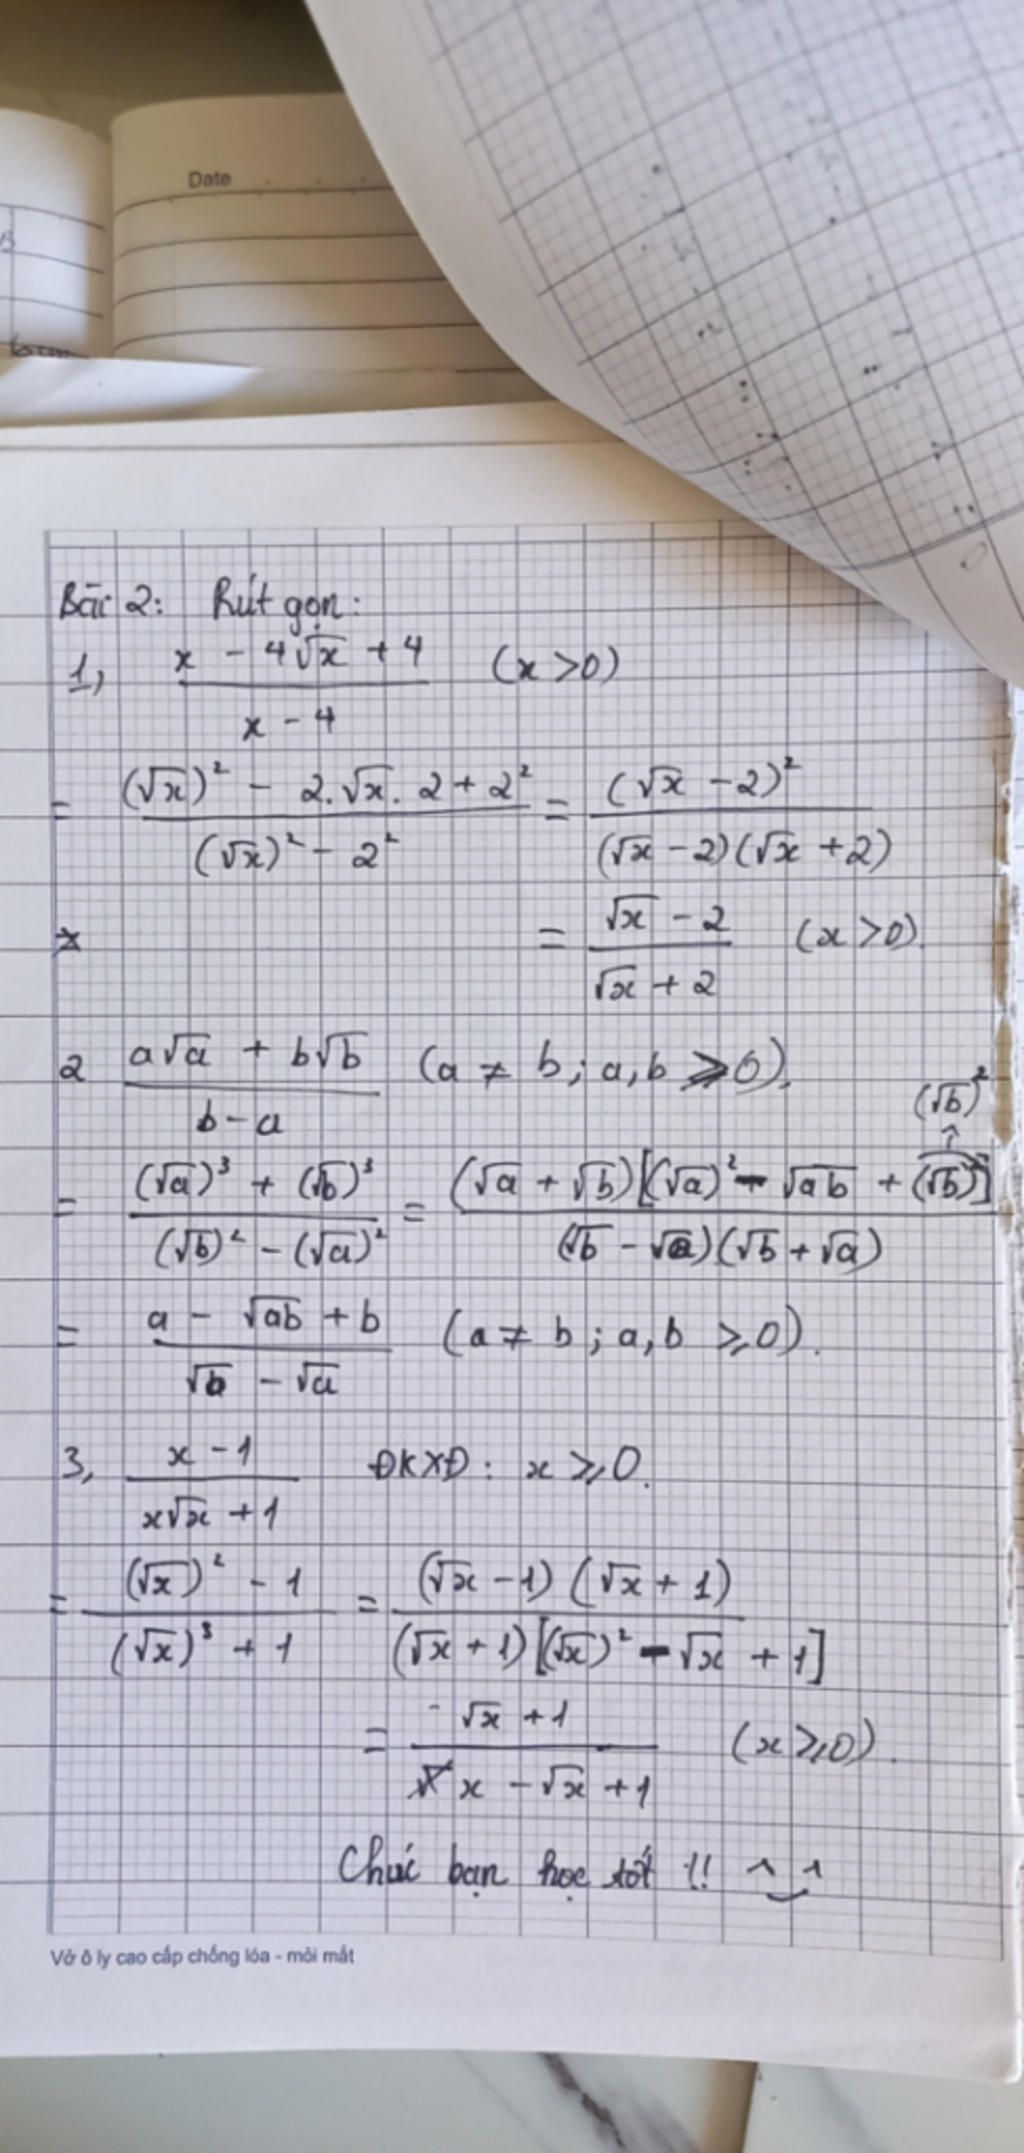 Date
Bài 2: Rút gọn:
1, (x - 4√x + 4)/(x - 4) (x > 0)
= ((√x)² - 2.√x. 2 + 2²)/((√x)² - 2²) = (√x - 2)²/((√x - 2)(√x + 2))
= (√x - 2)/(√x + 2) (x > 0).
2 (a√a + b√b)/(b - a) (a ≠ b ; a, b ≥ 0).
(√b)²
↑
= ((√a)³ + (√b)³)/((√b)² - (√a)²) = (√a + √b)[(√a)² - √ab + (√b)²]/((√b - √a)(√b + √a))
= (a - √ab + b)/(√b - √a) (a ≠ b ; a, b ≥ 0).
3, (x - 1)/(x√x + 1) ĐKXĐ: x ≥ 0.
= ((√x)² - 1)/((√x)³ + 1) = (√x - 1)(√x + 1)/((√x + 1)[(√x)² - √x + 1])
= (√x + 1)/(x - √x + 1) (x ≥ 0).
Chúc bạn học tốt !! ^‿^
Vở ô ly cao cấp chống lóa - mỏi mắt